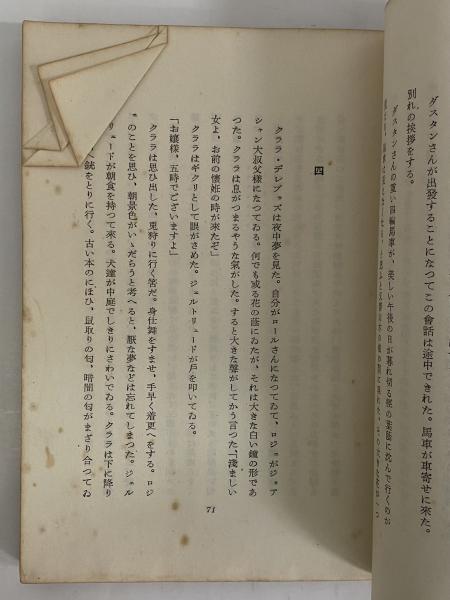 ダスタンさんが出發することになつてこの會話は途中できれた。馬車が車寄せに來た。
別れの挨拶をする。
ダスタンさんの重い四輪馬車が、美しい午後の日が暮れ切る
四
クララ・デレブゥズは夜中夢を見た。自分がロールさんになつてゐて、ロジェがジョア
シャン大叔父樣になつてゐる。何でも或る花の蔭にゐたが、それは大きな白い鐘の形であ
つた。クララは息がつまるやうな氣がした。すると大きな聲がしてかう言つた「淺ましい
女よ、お前の懷妊の時が來たぞ」
クララはギクリとして眼がさめた。ジェルトリュードが戶を叩いてゐる。
「お孃樣、五時でございますよ」
クララは思ひ出した、兎狩りに行く筈だ。身仕舞をすませ、手早く着更へをする。ロジ
のことを思ひ、朝景色がいゝだらうと考へると、厭な夢などは忘れてしまつた。ジェル
リュードが朝食を持つて來る。犬達が中庭でしきりにさわいでゐる。クララは下に降り
へ銃をとりに行く。古い本のにほひ、鼠取りの匂、暗闇の匂がまざり合つてゐ
71